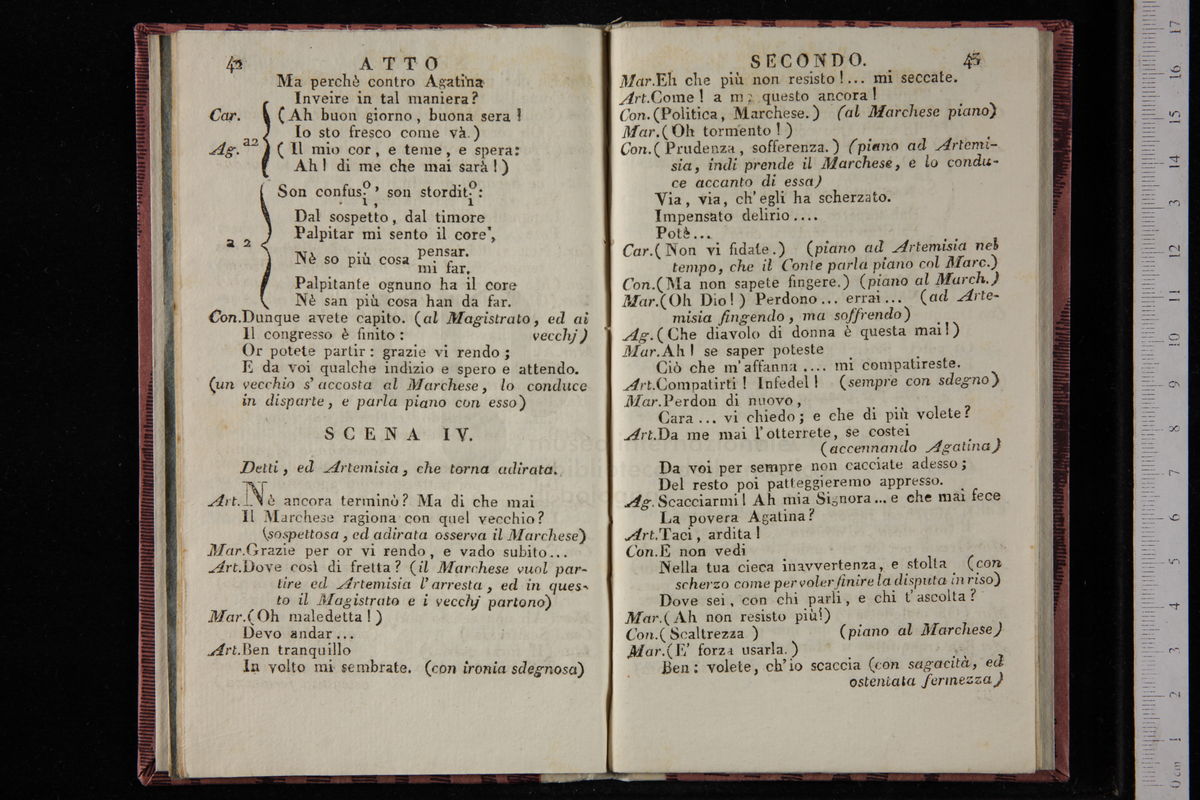 42 ATTO
Ma perchè contro Agatina
Inveire in tal maniera?
Car. (Ah buon giorno, buona sera!
Io sto fresco come và.)
a2
Ag. ( Il mio cor, e teme, e spera:
Ah! di me che mai sarà!)
Son confus o/i, son stordit o/i:
Dal sospetto, dal timore
Palpitar mi sento il core,
a 2
Nè so più cosa pensar.
mi far.
Palpitante ognuno ha il core
Nè san più cosa han da far.
Con.Dunque avete capito. (al Magistrato, ed ai
Il congresso è finito: vecchj)
Or potete partir: grazie vi rendo;
E da voi qualche indizio e spero e attendo.
(un vecchio s'accosta al Marchese, lo conduce
in disparte, e parla piano con esso)
SCENA IV.
Detti, ed Artemisia, che torna adirata.
Art. Nè ancora terminò? Ma di che mai
Il Marchese ragiona con quel vecchio?
(sospettosa, ed adirata osserva il Marchese)
Mar.Grazie per or vi rendo, e vado subito...
Art.Dove così di fretta? (il Marchese vuol par-
tire ed Artemisia l'arresta, ed in ques-
to il Magistrato e i vecchj partono)
Mar.(Oh maledetta!)
Devo andar...
Art.Ben tranquillo
In volto mi sembrate. (con ironia sdegnosa)
SECONDO. 43
Mar.Eh che più non resisto!... mi seccate.
Art.Come! a me questo ancora!
Con.(Politica, Marchese.) (al Marchese piano)
Mar.(Oh tormento!)
Con.(Prudenza, sofferenza.) (piano ad Artemi-
sia, indi prende il Marchese, e lo condu-
ce accanto di essa)
Via, via, ch'egli ha scherzato.
Impensato delirio....
Potè...
Car.(Non vi fidate.) (piano ad Artemisia nel
tempo, che il Conte parla piano col Marc.)
Con.(Ma non sapete fingere.) (piano al March.)
Mar.(Oh Dio!) Perdono... errai... (ad Arte-
misia fingendo, ma soffrendo)
Ag.(Che diavolo di donna è questa mai!)
Mar.Ah! se saper poteste
Ciò che m'affanna .... mi compatireste.
Art.Compatirti! Infedel! (sempre con sdegno)
Mar.Perdon di nuovo,
Cara ... vi chiedo; e che di più volete?
Art.Da me mai l'otterrete, se costei
(accennando Agatina)
Da voi per sempre non cacciate adesso;
Del resto poi patteggieremo appresso.
Ag.Scacciarmi! Ah mia Signora... e che mai fece
La povera Agatina?
Art.Taci, ardita!
Con.E non vedi
Nella tua cieca inavvertenza, e stolta (con
scherzo come per voler finire la disputa in riso)
Dove sei, con chi parli, e chi t'ascolta?
Mar.(Ah non resisto più!)
Con.(Scaltrezza) (piano al Marchese)
Mar.(E' forza usarla.)
Ben: volete, ch'io scaccia (con sagacità, ed
ostentata fermezza)
0 cm 1 2 3 4 5 6 7 8 9 10 11 12 13 14 15 16 17